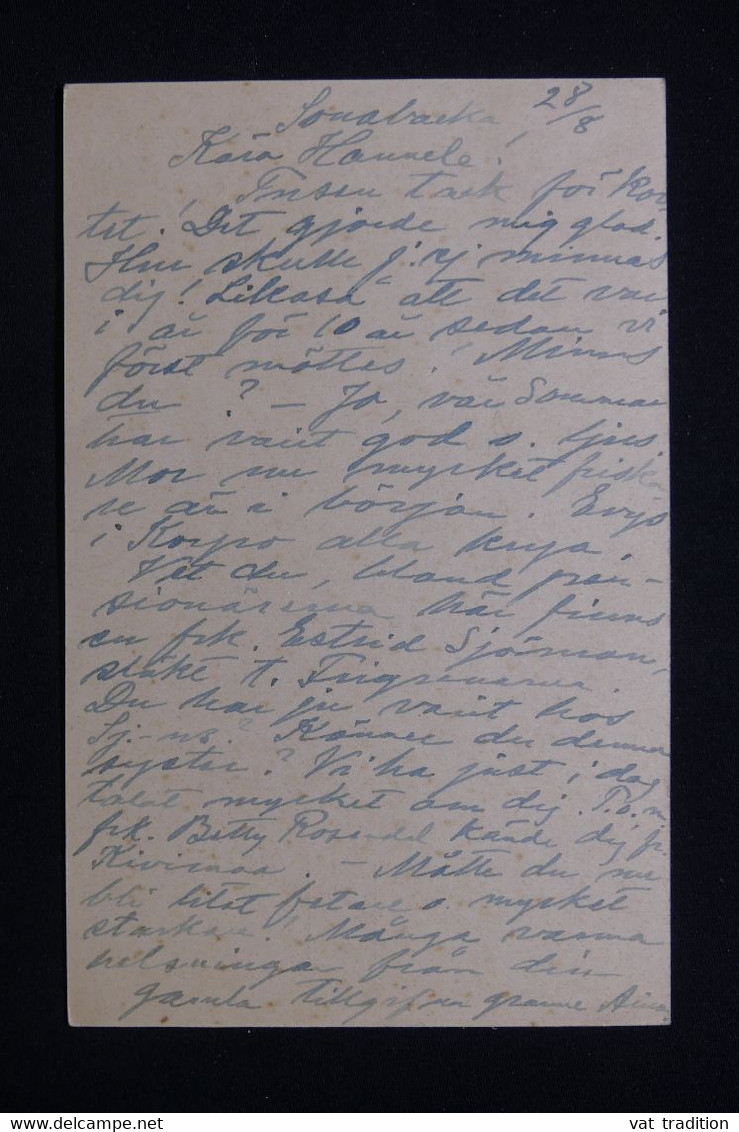 28/8
Kära Hannele!
Tusen tack för kor-
tet! Det gjorde mig glad.
Hur skulle j. ej minnas
dig! Likaså att det var
i år för 10 år sedan vi
först möttes. Minns
du? – Jo, vår Sommar
har varit god o. ljus
Mor nu mycket friska-
re än i början. Evys
i Korpo alla krya.
Vet du, bland pen-
sionärerna här finns
en frk. Estrid Sjöman,
släkt t.
Du har ju varit hos
Sj-ns? Känner du denna
syster? Vi ha just i dag
talat mycket om dig. T.o.m
frk. Betty Rosendal kände dig fr.
Kivimaa. – Måtte du nu
bli litet fetare o. mycket
starkare! Många varma
helsningar från din
gamla tillgifna granne
vat tradition
www.delcampe.net